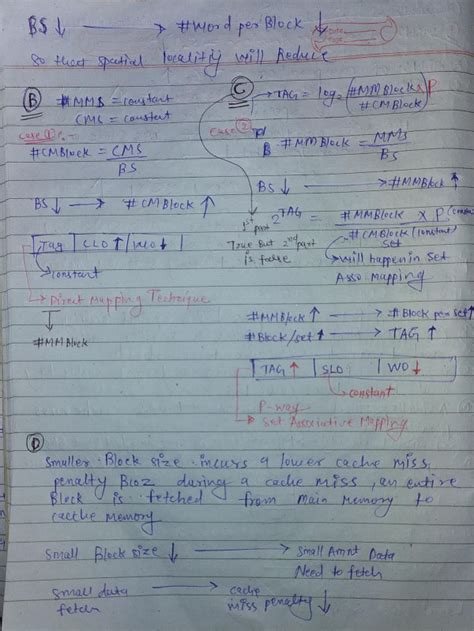 BS↓ → #Word per Block ↓
Date
Page
so that spatial locality will Reduce
(B) #MMS = constant
CMS = constant
case ① :-
#CMBlock = CMS / BS
BS↓ → #CMBlock ↑
Tag | CLO ↑ | WO ↓
→ constant
→ Direct Mapping Technique
#MMBlock
(C) → TAG = log₂ (#MMBlock × P / #CMBlock)
case ②
#MMBlock = MMS / BS
BS ↓ → #MMBlock ↑
1st part
2^TAG = #MMBlock × P / #CMBlock (constant)
True but 2nd part is false
set
→ will happen in Set Asso Mapping
#MMBlock ↑ → # Block per set ↑
#Block/set ↑ → TAG ↑
TAG ↑ | SLO | WO ↓
→ constant
P-way
→ Set Associative Mapping
(D)
Smaller Block size incurs a lower cache miss
penalty Bcoz during a cache miss, an entire
Block is fetched from main memory to
cache memory
Small Block size ↓ → Small Amnt Data
Need to fetch
Small data fetch → cache miss penalty ↓